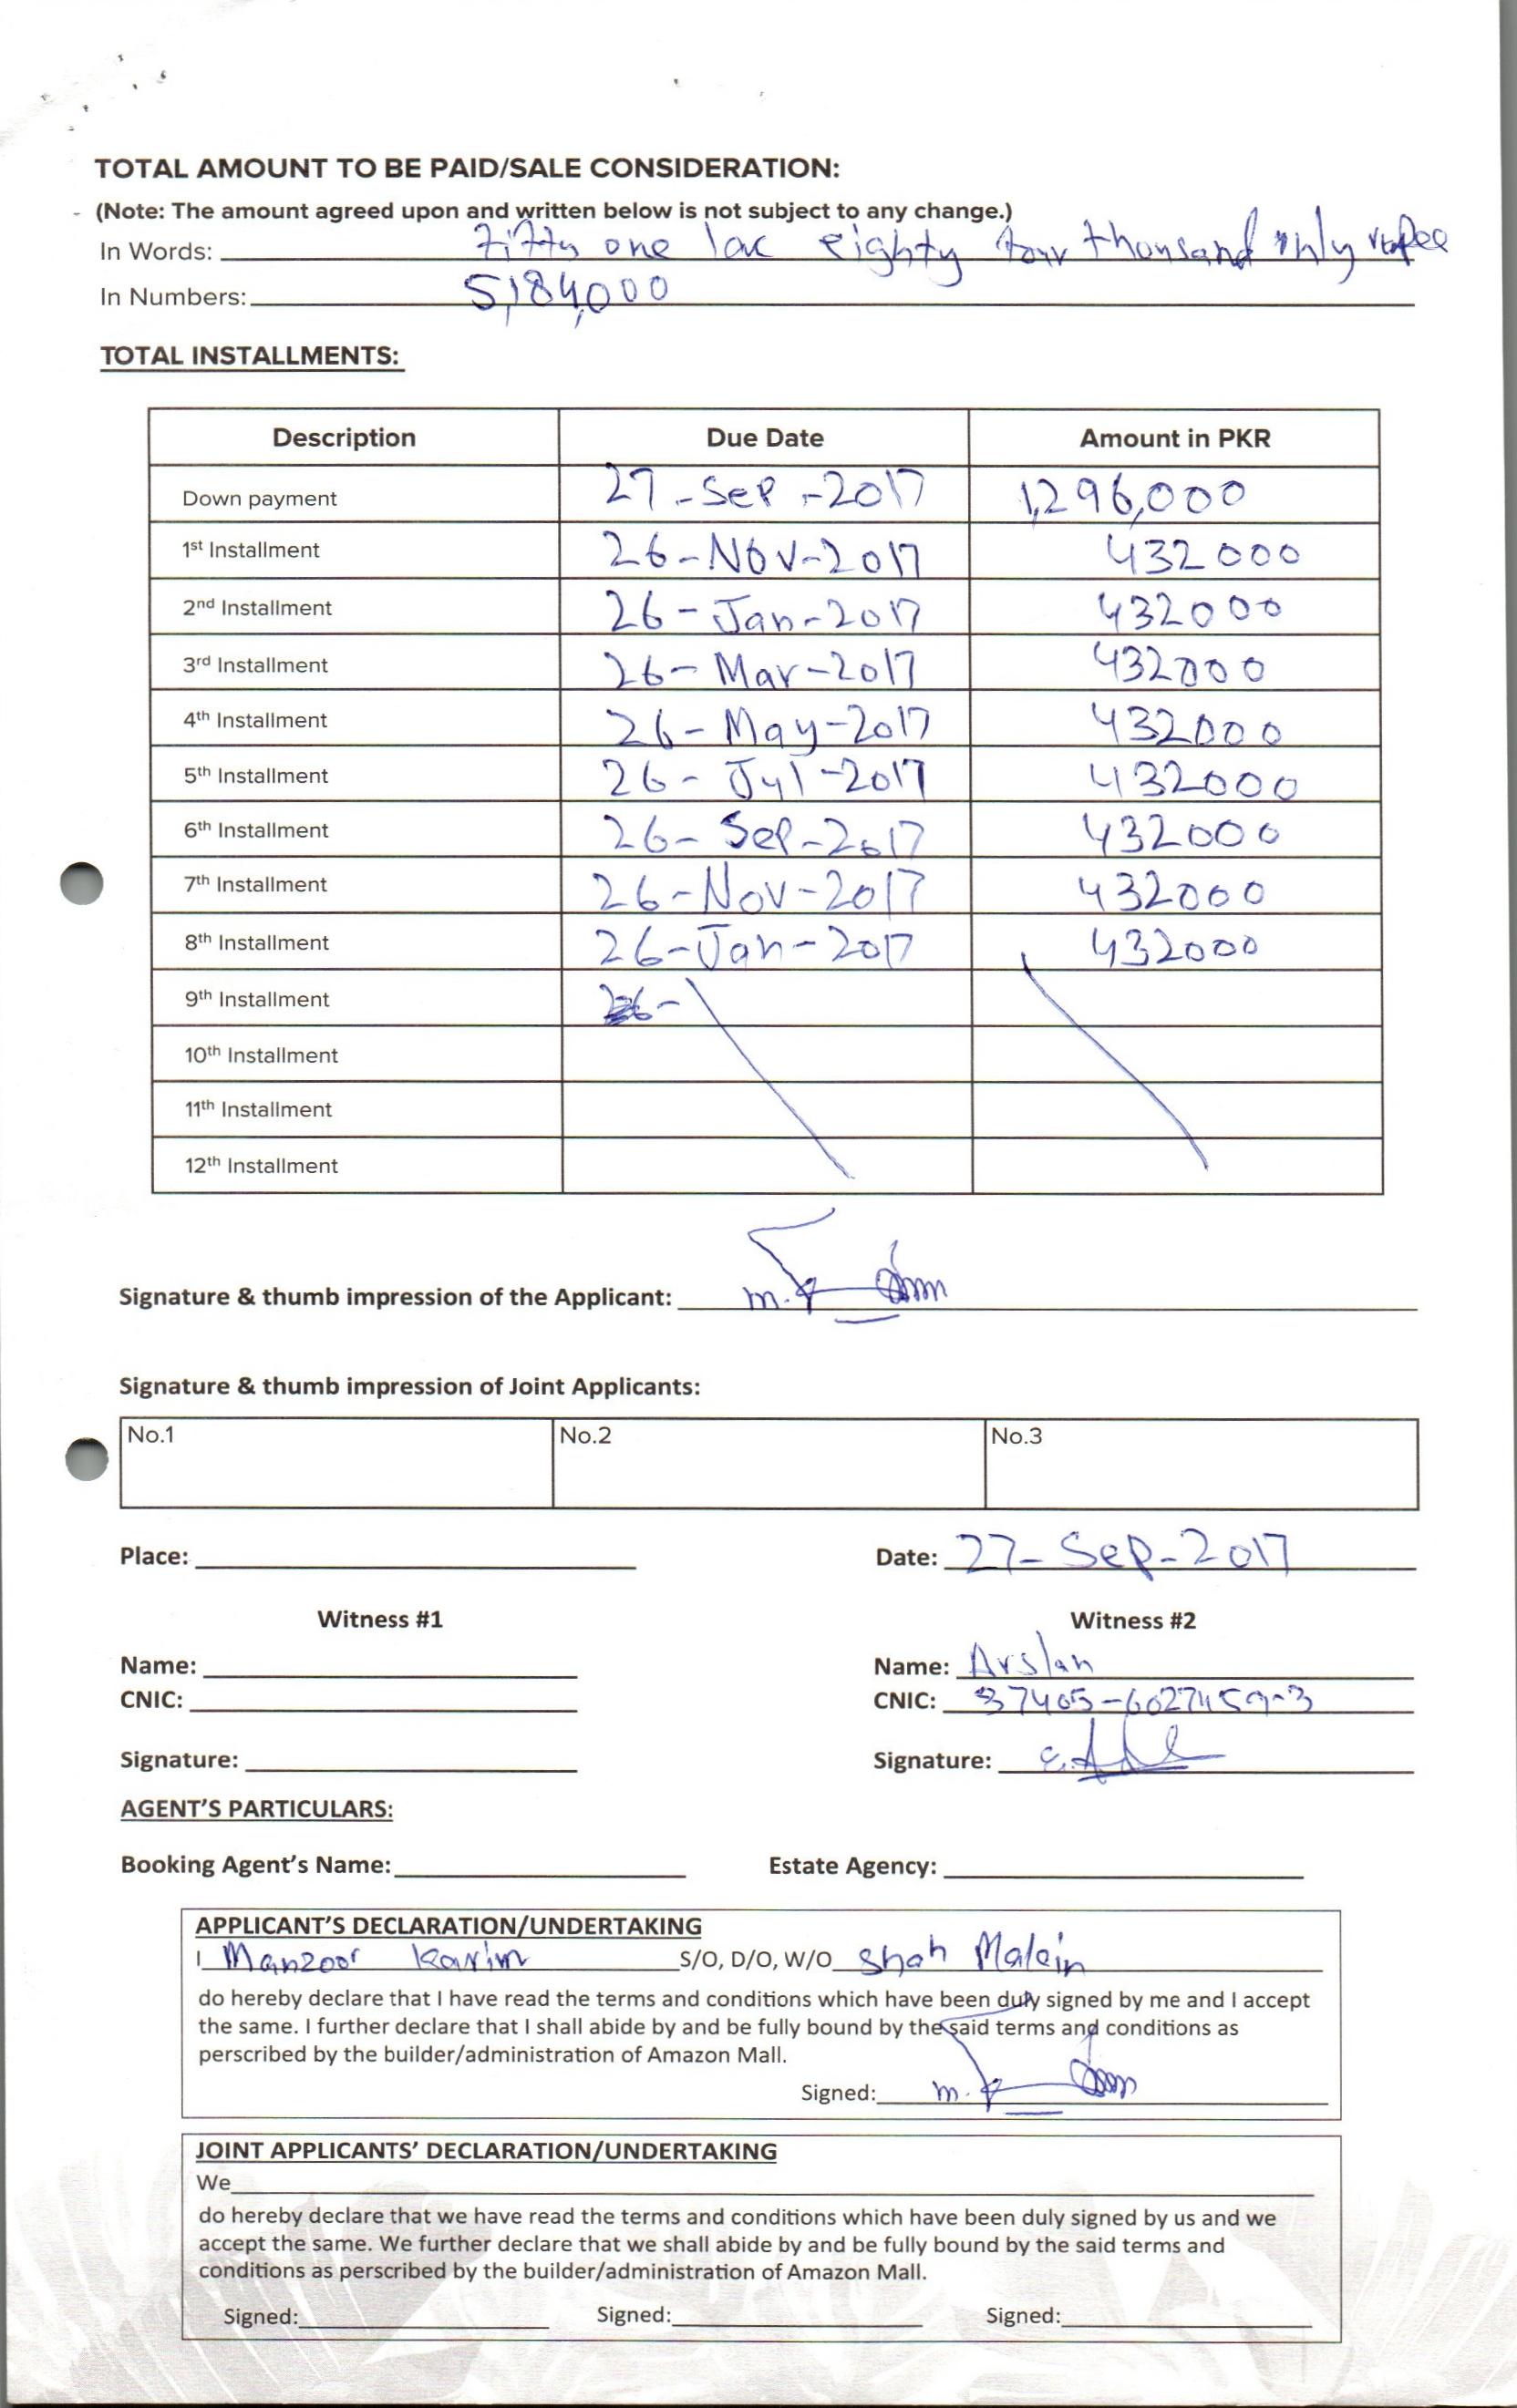 TOTAL AMOUNT TO BE PAID/SALE CONSIDERATION:
(Note: The amount agreed upon and written below is not subject to any change.)
In Words: Fifty one lac eighty four thousand only rupee
In Numbers: 5,184,000
TOTAL INSTALLMENTS:
Description Due Date Amount in PKR
Down payment 27-Sep-2017 1,296,000
1st Installment 26-Nov-2017 432000
2nd Installment 26-Jan-2017 432000
3rd Installment 26-Mar-2017 432000
4th Installment 26-May-2017 432000
5th Installment 26-Jul-2017 432000
6th Installment 26-Sep-2017 432000
7th Installment 26-Nov-2017 432000
8th Installment 26-Jan-2017 432000
9th Installment 26-
10th Installment
11th Installment
12th Installment
Signature & thumb impression of the Applicant:
Signature & thumb impression of Joint Applicants:
No.1 No.2 No.3
Place: Date: 27-Sep-2017
Witness #1 Witness #2
Name: Name: Arslan
CNIC: CNIC:
Signature: Signature:
AGENT'S PARTICULARS:
Booking Agent's Name: Estate Agency:
APPLICANT'S DECLARATION/UNDERTAKING
I Manzoor Karim S/O, D/O, W/O Shah Malein
do hereby declare that I have read the terms and conditions which have been duly signed by me and I accept
the same. I further declare that I shall abide by and be fully bound by the said terms and conditions as
perscribed by the builder/administration of Amazon Mall.
Signed:
JOINT APPLICANTS' DECLARATION/UNDERTAKING
We
do hereby declare that we have read the terms and conditions which have been duly signed by us and we
accept the same. We further declare that we shall abide by and be fully bound by the said terms and
conditions as perscribed by the builder/administration of Amazon Mall.
Signed: Signed: Signed: